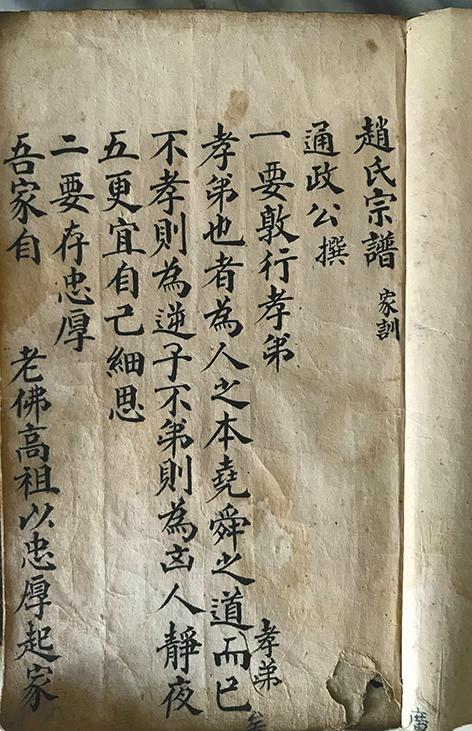 趙氏宗譜 家訓
通政公撰
一要敦行孝弟
孝弟也者為人之本堯舜之道孝弟而已矣
不孝則為逆子不弟則為凶人靜夜
五更宜自己細思
二要存忠厚
吾家自 老佛高祖以忠厚起家
廣